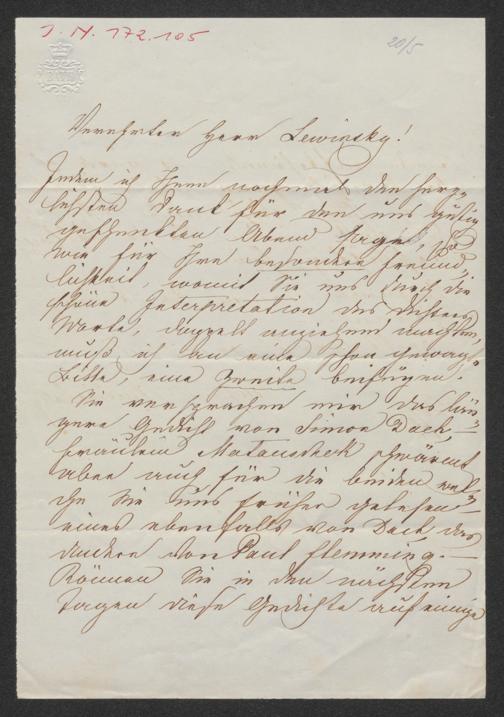 J. N. 172.105
20/5
Verehrter Herr Lewinsky!
Indem ich Ihnen nochmals den herz-
lichsten Dank für den uns gütig
geschenkten Abend sage, so
wie für Ihre besondere Freund-
lichkeit, womit Sie uns durch die
schöne Interpretation des Dichters
Worte, doppelt anziehend machten,
muß ich an eine schon gewagte
Bitte, eine zweite beifügen.
Sie versprachen mir das län-
gere Gedicht von Simon Dach,
Fräulein Matauscheck schwärmt
aber auch für die beiden wel-
che Sie uns früher gelesen
eines ebenfalls von Dach das
andere von Paul Flemming.
Können Sie in den nächsten
Tagen diese Gedichte auf einige